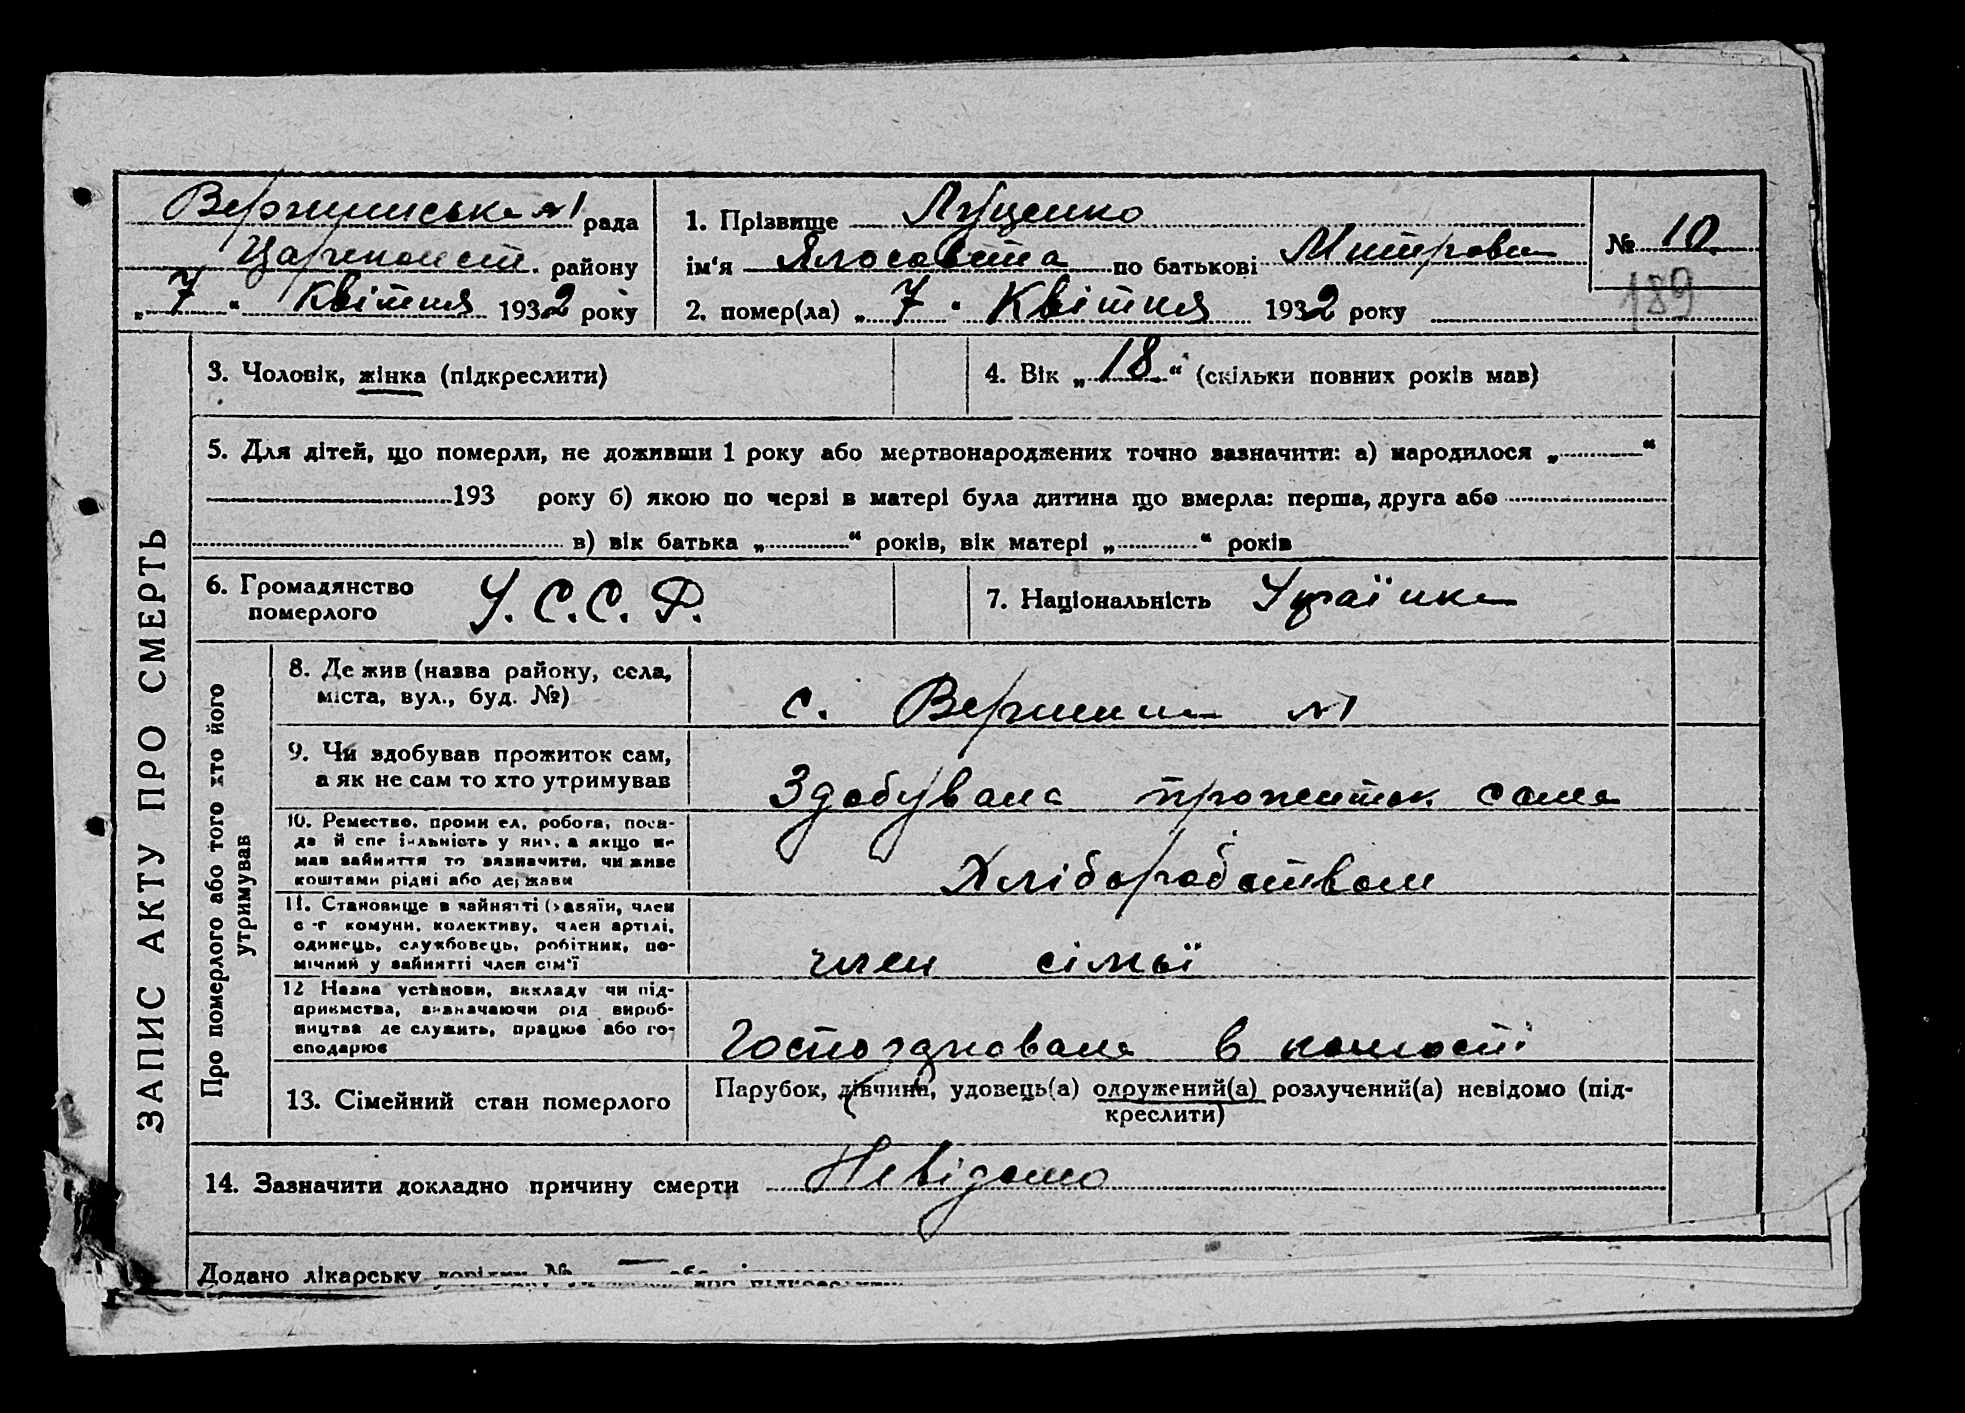 ЗАПИС АКТУ ПРО СМЕРТЬ
рада
району
„ 7 “ Квітня 1932 року
1. Прізвище Луценко
ім‘я Ялосавета по батькові Митрова
№ 10
189
2. помер(ла) „ 7 “ Квітня 1932 року
3. Чоловік, жінка (підкреслити)
4. Вік „ 18 “ (скільки повних років мав)
5. Для дітей, що померли, не доживши 1 року або мертвонароджених точно зазначити: а) народилося „ “
193 року б) якою по черзі в матері була дитина що вмерла: перша, друга або
в) вік батька „ “ років, вік матері „ “ років
6. Громадянство
померлого
У.С.С.Р.
7. Національність Українка
Про померлого або того хто його
утримував
8. Де жив (назва району, села,
міста, вул., буд. №)
с. Вершина №1
9. Чи здобував прожиток сам,
а як не сам то хто утримував
Здобувала прожиток сама
10. Ремество, промисел, робота, поса-
да й спеціяльність у них, а якщо не
мав зайняття то зазначити, чи живе
коштами рідні або держави
Хліборобством
11. Становище в зайнятті (хазяїн, член
с-г комуни, колективу, член артілі,
одинець, службовець, робітник, по-
мічний у зайнятті член сім‘ї
член сімьї
12 Назва установи, закладу чи під-
приємства, зазначаючи рід вироб-
ництва де служить, працює або го-
сподарює
Господарювала в
13. Сімейний стан померлого
Парубок, дівчина, удовець(а) одружений(а) розлучений(а) невідомо (під-
креслити)
14. Зазначити докладно причину смерти Невідомо
Додано лікарську довідку №